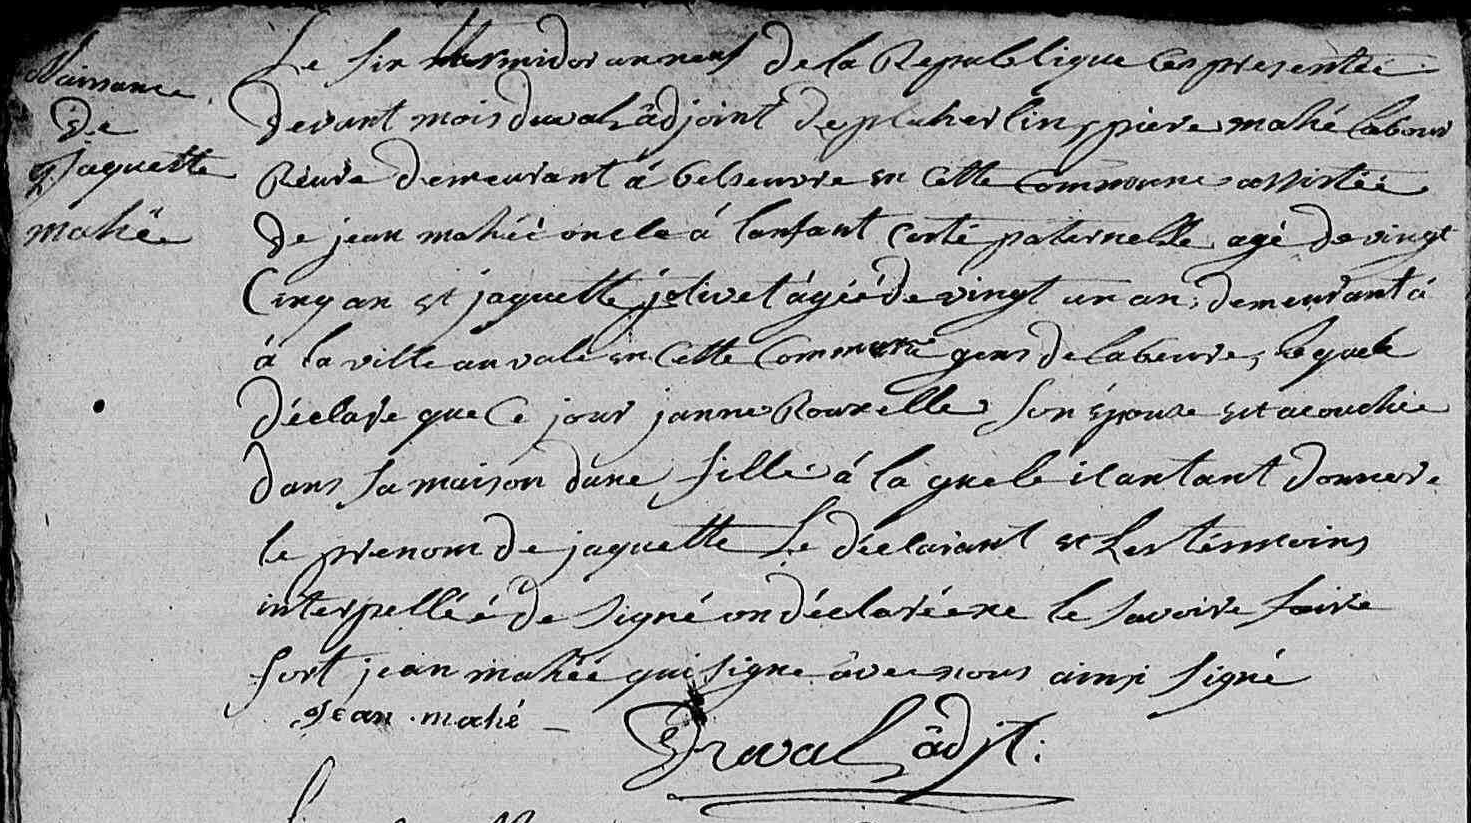 Naissance
de
Jaquette
mahé
Le six thermidor an neuf de la Republique Ces presentée
devant mois duval âdjoint de plucherlin, piere mahé labour
Reure demeurant á en cette Commune assistée
de jean mahéé oncle á lanfant Coté paternelle agé de vingt
Cinq an et jaquette jolivet ágéé de vingt un an, demeurant á
á la ville au vale en Cette Commune gens de labeure, lequele
déclare que Ce jour janne Rouxelle son épouse est acouchée
dans sa maison dune fille á la quele il antant donnere
le prenom de jaquette Le déclarant et Les témoins
interpelléé de signé on déclaréene le savoire faire
fort jean mahéé qui signe âvec nous ainsi signé
Jean mahé
Duval âdjt.